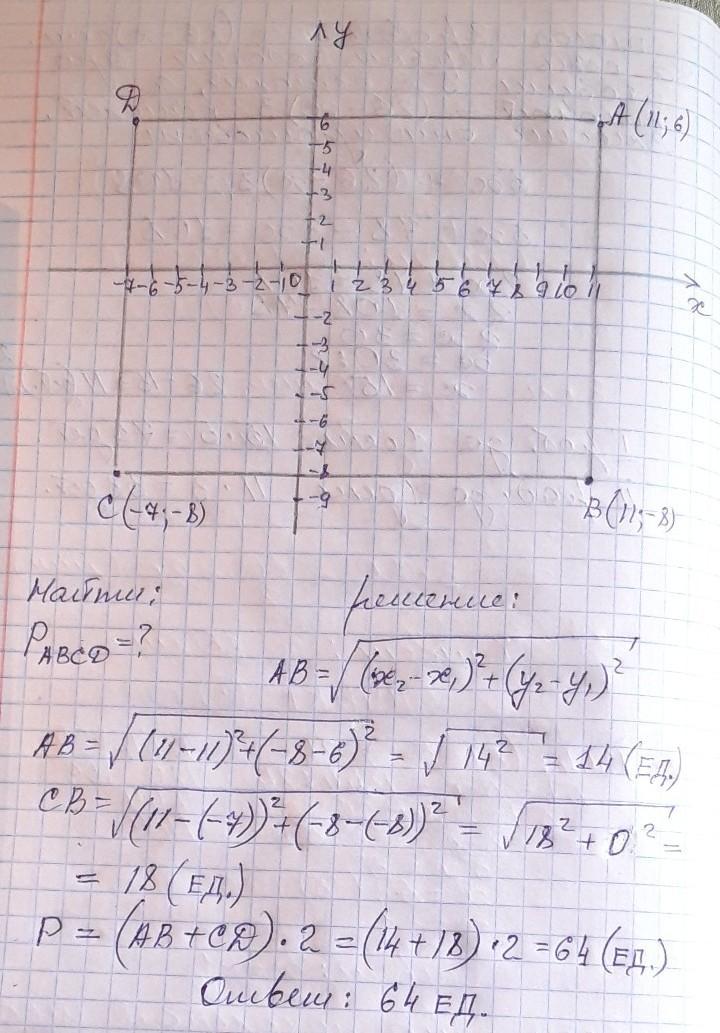 y
D
A (11; 6)
6
5
4
3
2
1
-7 -6 -5 -4 -3 -2 -1 0 1 2 3 4 5 6 7 8 9 10 11
x
-2
-3
-4
-5
-6
-7
-8
-9
C (-7; -8)
B (11; -8)
Найти: решение:
P_ABCD = ?
AB = √((x₂ - x₁)² + (y₂ - y₁)²)
AB = √((11-11)² + (-8-6)²) = √(14²) = 14 (ЕД.)
CB = √((11-(-7))² + (-8-(-8))²) = √(18² + 0²) =
= 18 (ЕД.)
P = (AB + CD) · 2 = (14 + 18) · 2 = 64 (ЕД.)
Ответ: 64 ЕД.